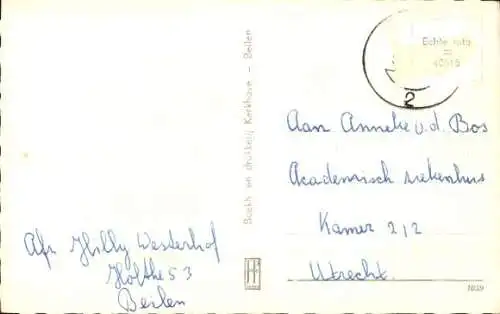 Echte foto
Boekh en drukkerij Kerkhove - Beilen
Aan Anneke v.d. Bos
Academisch ziekenhuis
Kamer 212
Utrecht.
Afz Hilly Westerhof
Holthe 53
Beilen
1029
2